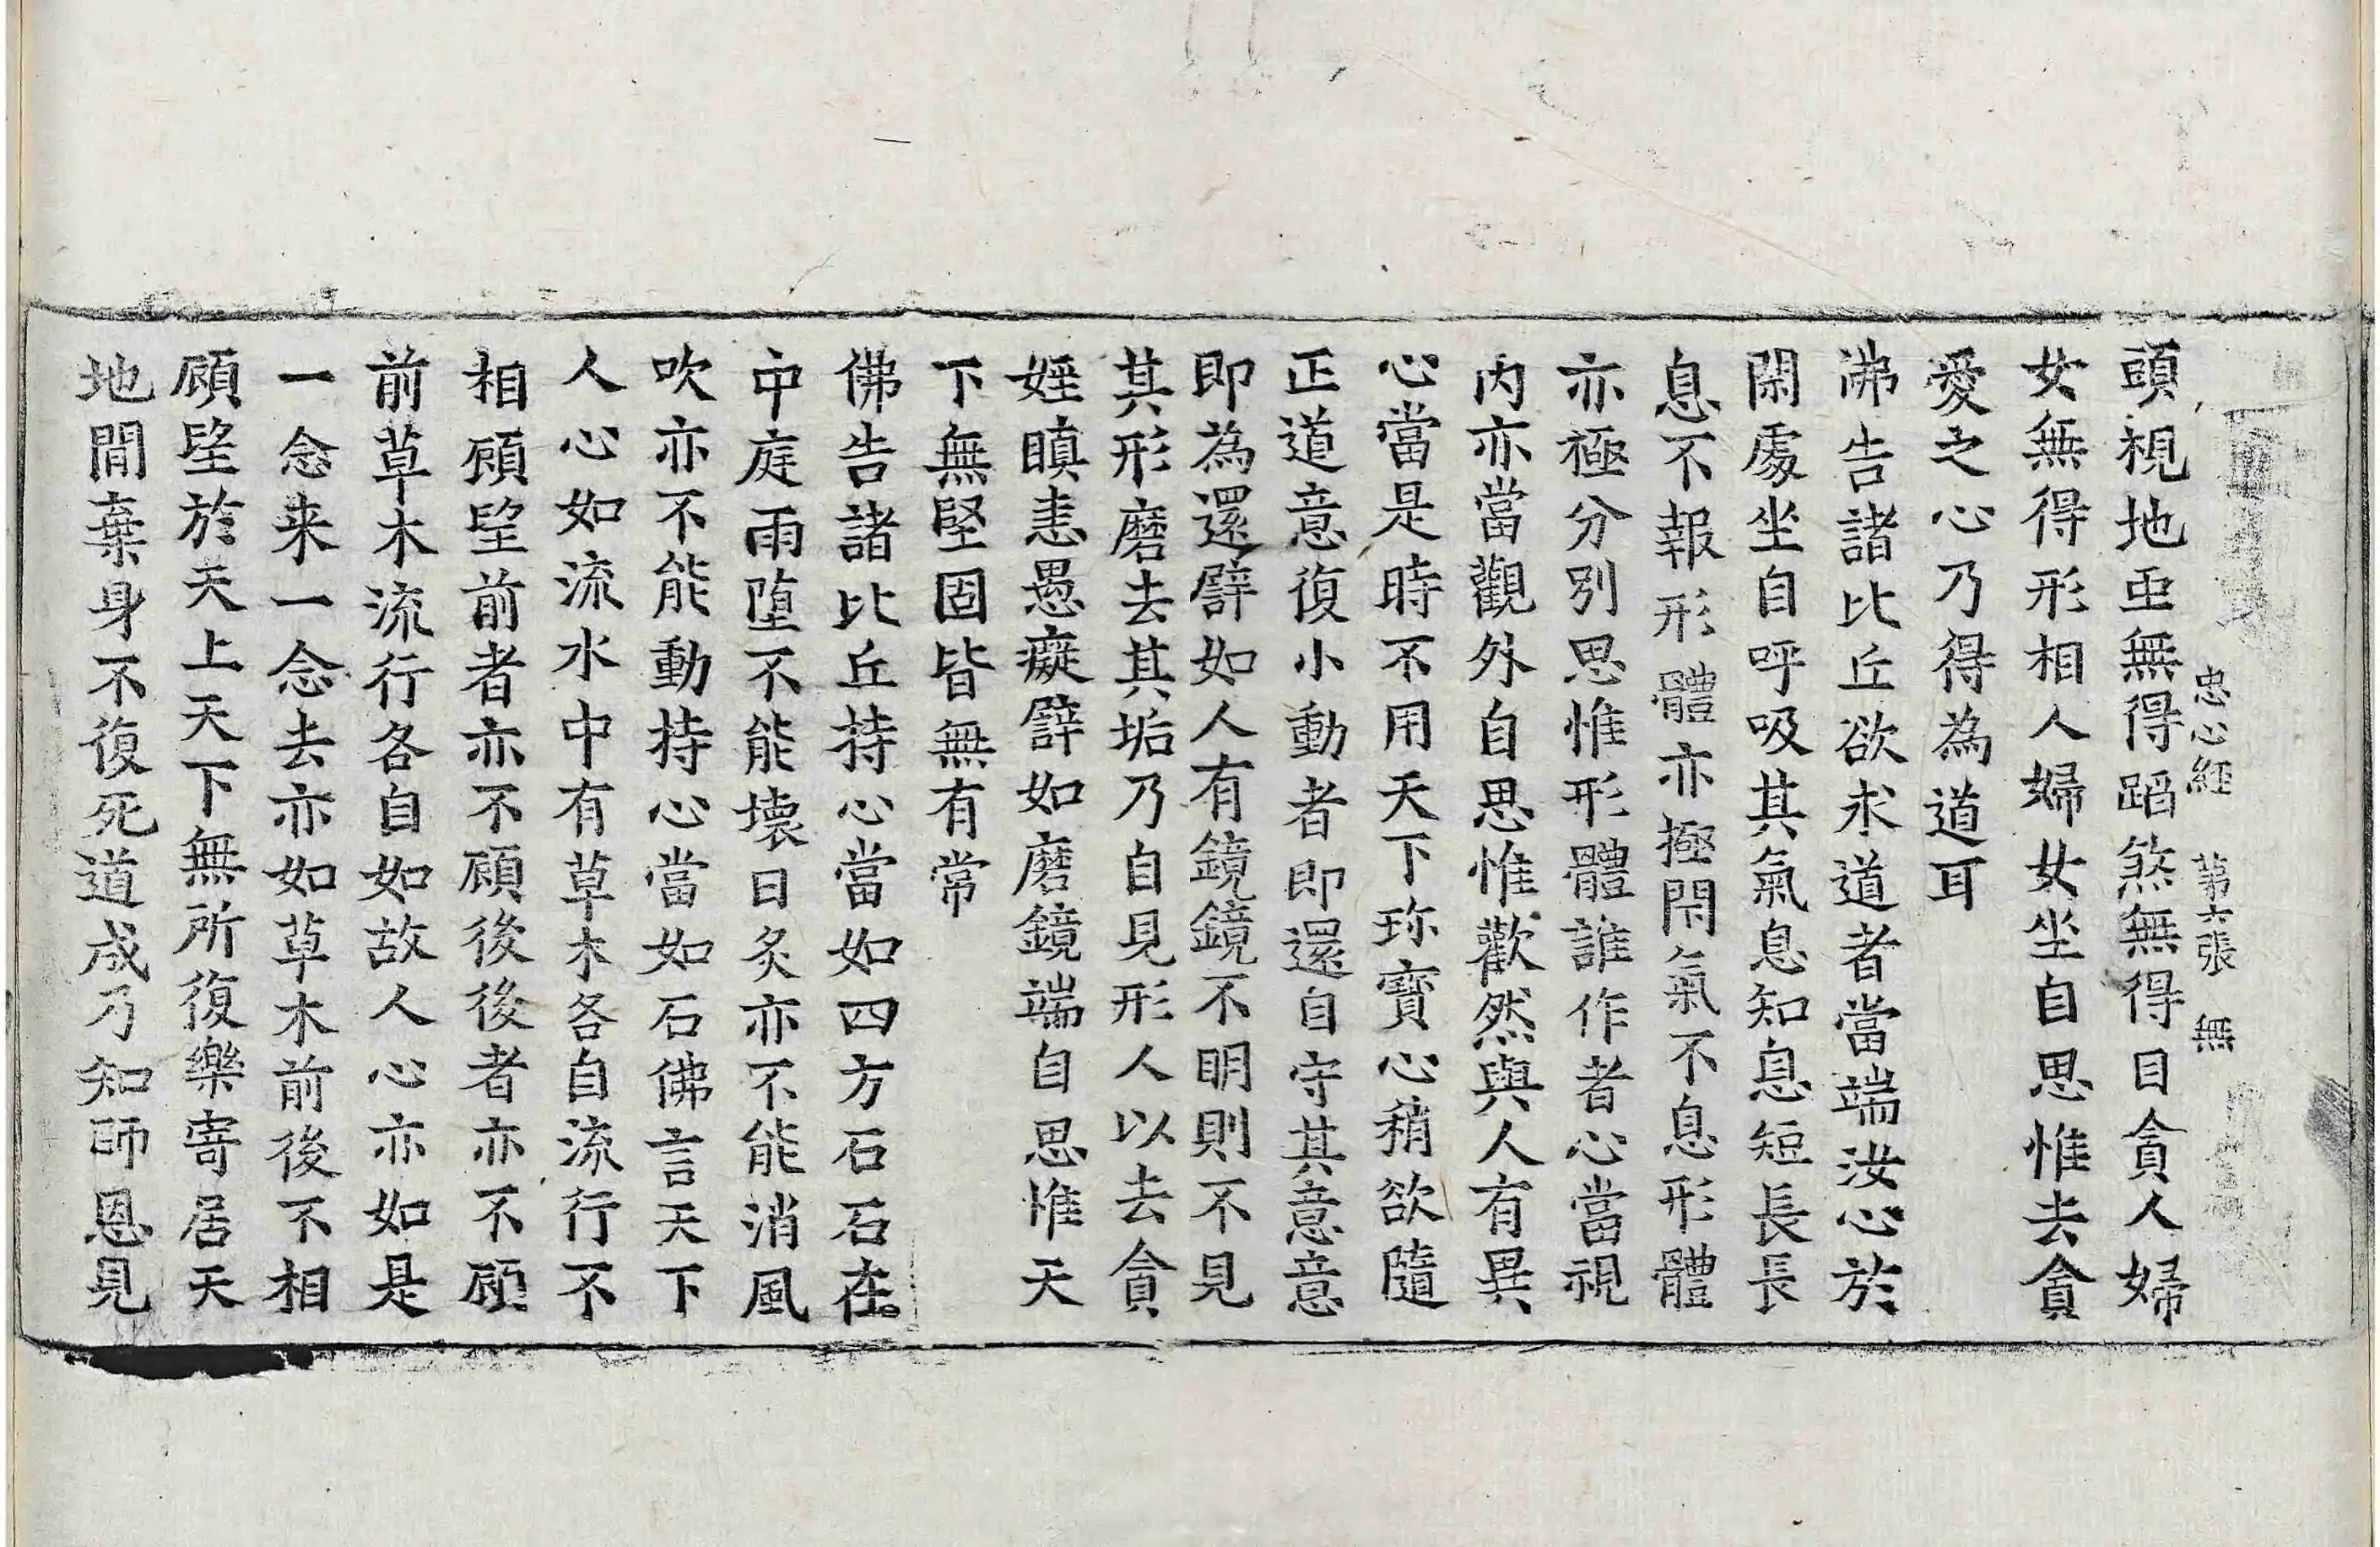 忠心經 第六張 無
頭視地虫無得蹈煞無得目貪人婦
女無得形相人婦女坐自思惟去貪
愛之心乃得為道耳
沸告諸比丘欲求道者當端汝心於
閑處坐自呼吸其氣息知息短長長
息不報形體亦極閇氣不息形體
亦極分別思惟形體誰作者心當視
内亦當觀外自思惟歡然與人有異
心當是時不用天下珎寶心稍欲隨
正道意復小動者即還自守其意意
即為還譬如人有鏡鏡不明則不見
其形磨去其垢乃自見形人以去貪
婬瞋恚愚癡譬如磨鏡端自思惟天
下無堅固皆無有常
佛告諸比丘持心當如四方石石在
中庭雨墮不能壊日炙亦不能消風
吹亦不能動持心當如石佛言天下
人心如流水中有草木各自流行不
相顧望前者亦不顧後後者亦不顧
前草木流行各自如故人心亦如是
一念来一念去亦如草木前後不相
顧望於天上天下無所復樂寄居天
地閒棄身不復死道成乃知師恩見